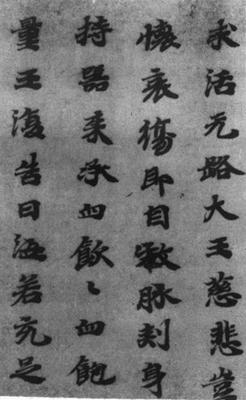 求活无路大王慈悲豈
懷哀傷即自放脉刺身
持器来承血飲〻血飽
量王復告曰汝若充足